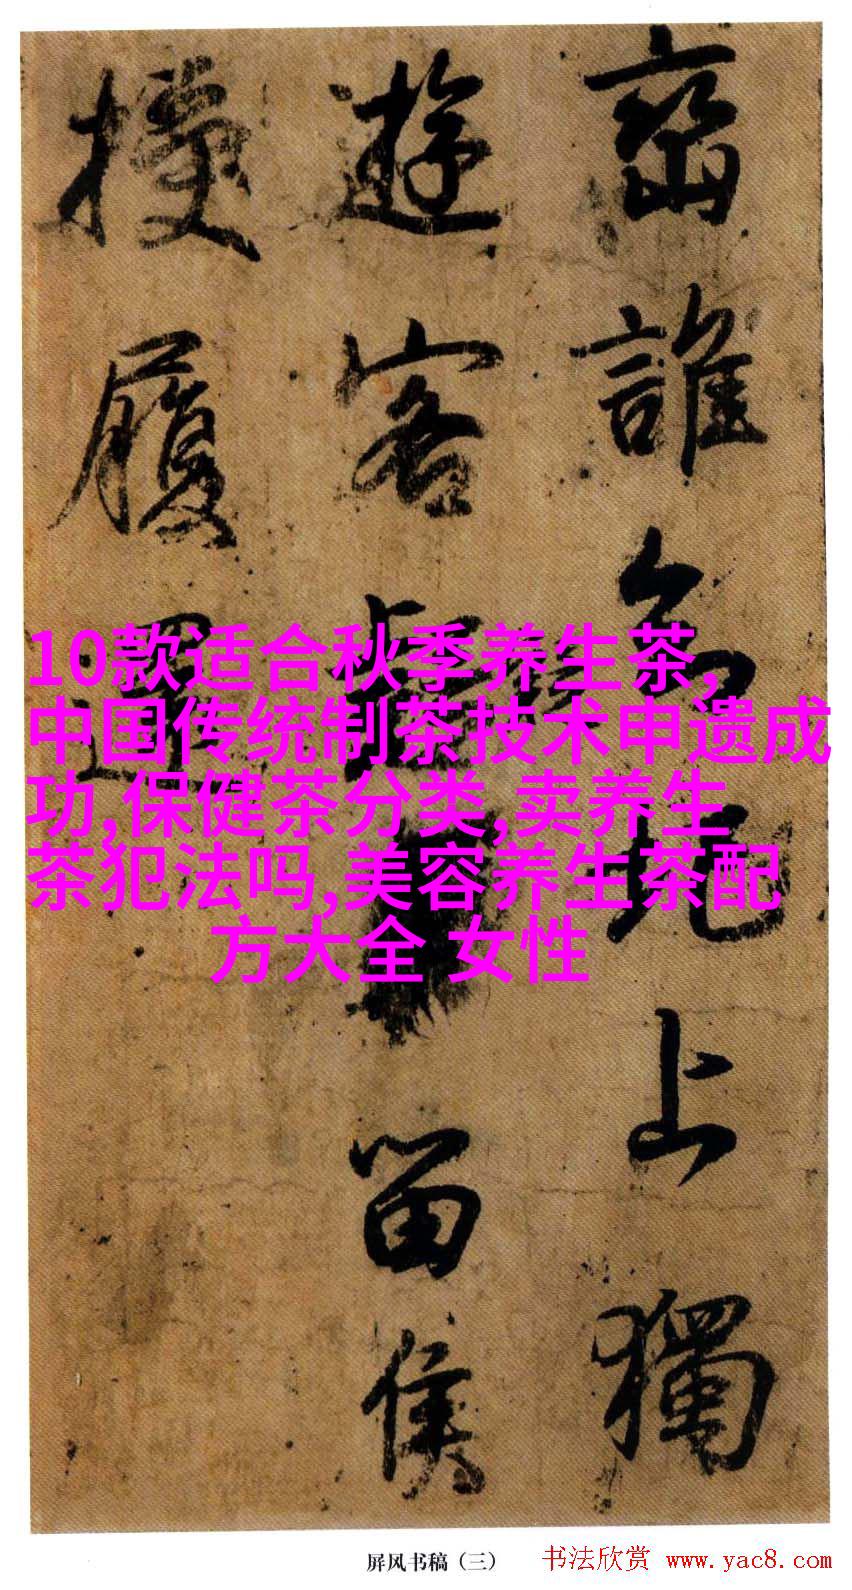 巒誰為圯上獨
遊客
留侯
擾履
10款适合秋季养生茶,
中国传统制茶技术申遗成
功,保健茶分类,卖养生
茶犯法吗,美容养生茶配
方大全 女性
屏风书稿（三） 书法欣赏 www.yac8.com